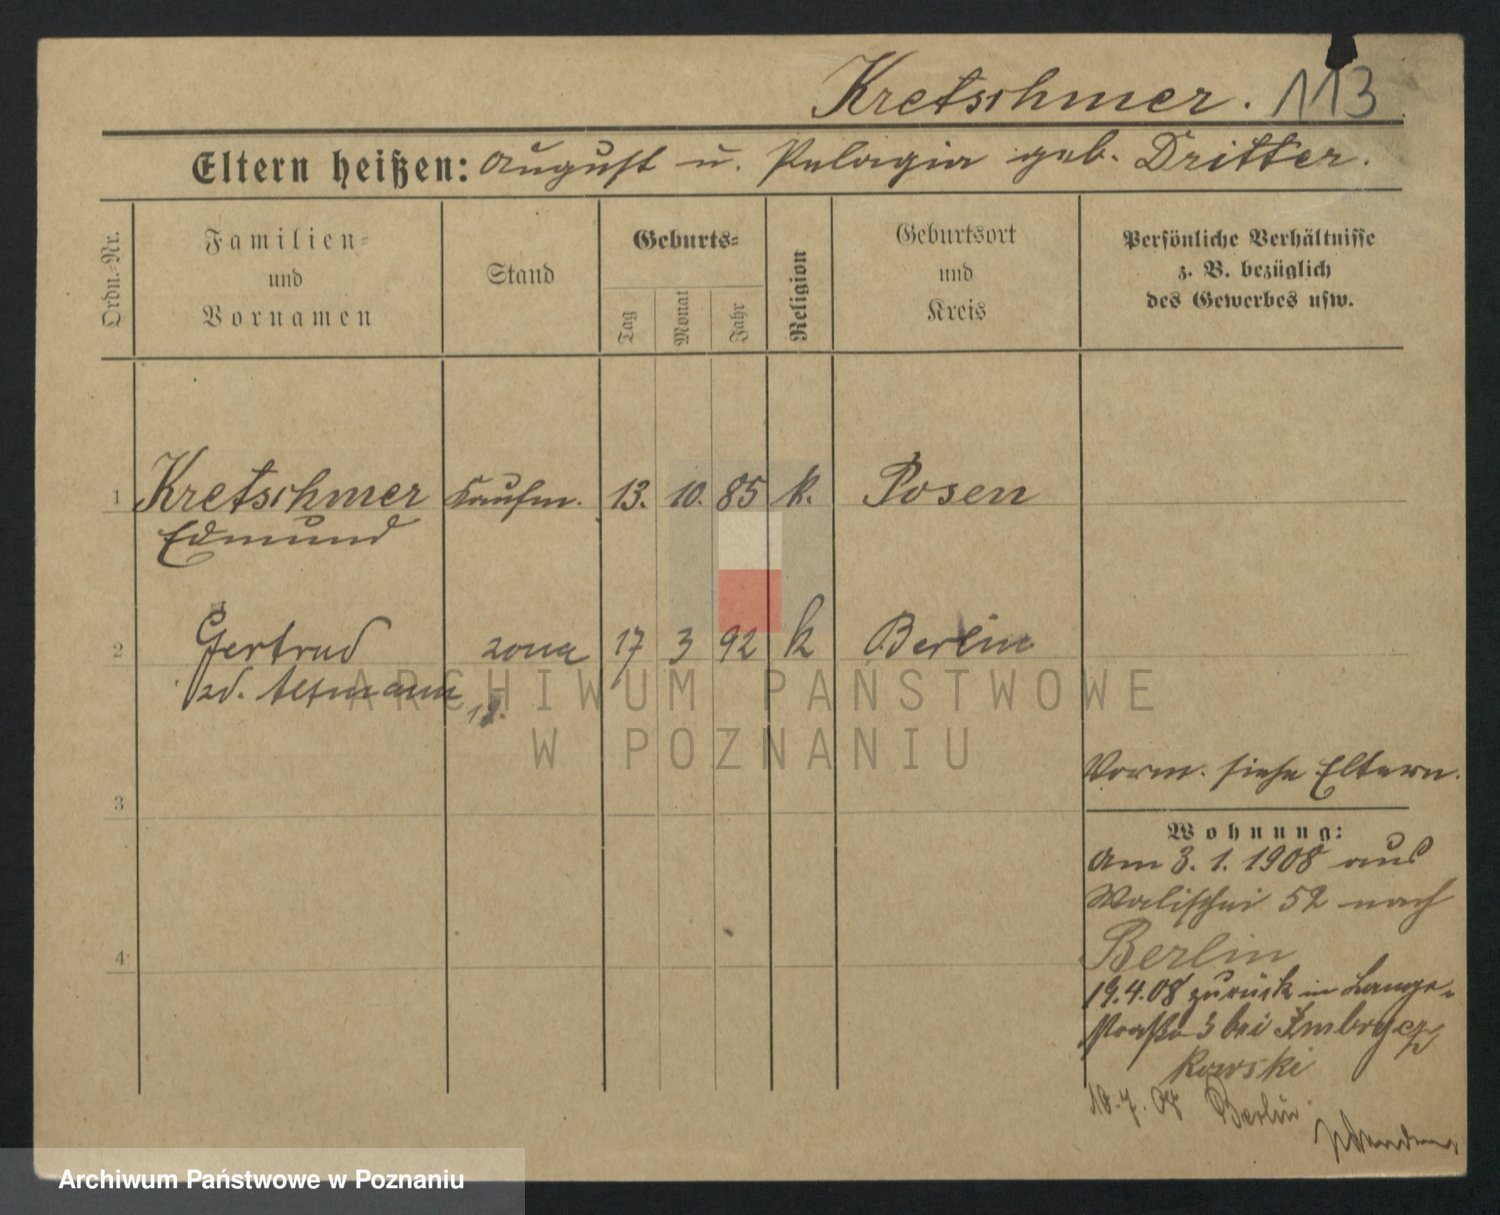 Kretschmer. 113
Eltern heißen: August u. Pelagia geb. Dritter.
Ordn.-Nr.
Familien-
und
Vornamen
Stand
Geburts-
Tag
Monat
Jahr
Religion
Geburtsort
und
Kreis
Persönliche Verhältnisse
z. B. bezüglich
des Gewerbes usw.
1 Kretschmer Kaufm. 13. 10. 85 k. Posen
Edmund
2 Gertrud żona 17 3 92 k Berlin
zd. Altmann
18.
ARCHIWUM PAŃSTWOWE
W POZNANIU
Vorm. siehe Eltern.
3
Wohnung:
Am 3. 1. 1908 aus
Walischei 52 nach
Berlin
4
19.4.08 zurück in Lange-
straße 3 bei Imbrycz
kowski
10.7.08 Berlin
Archiwum Państwowe w Poznaniu